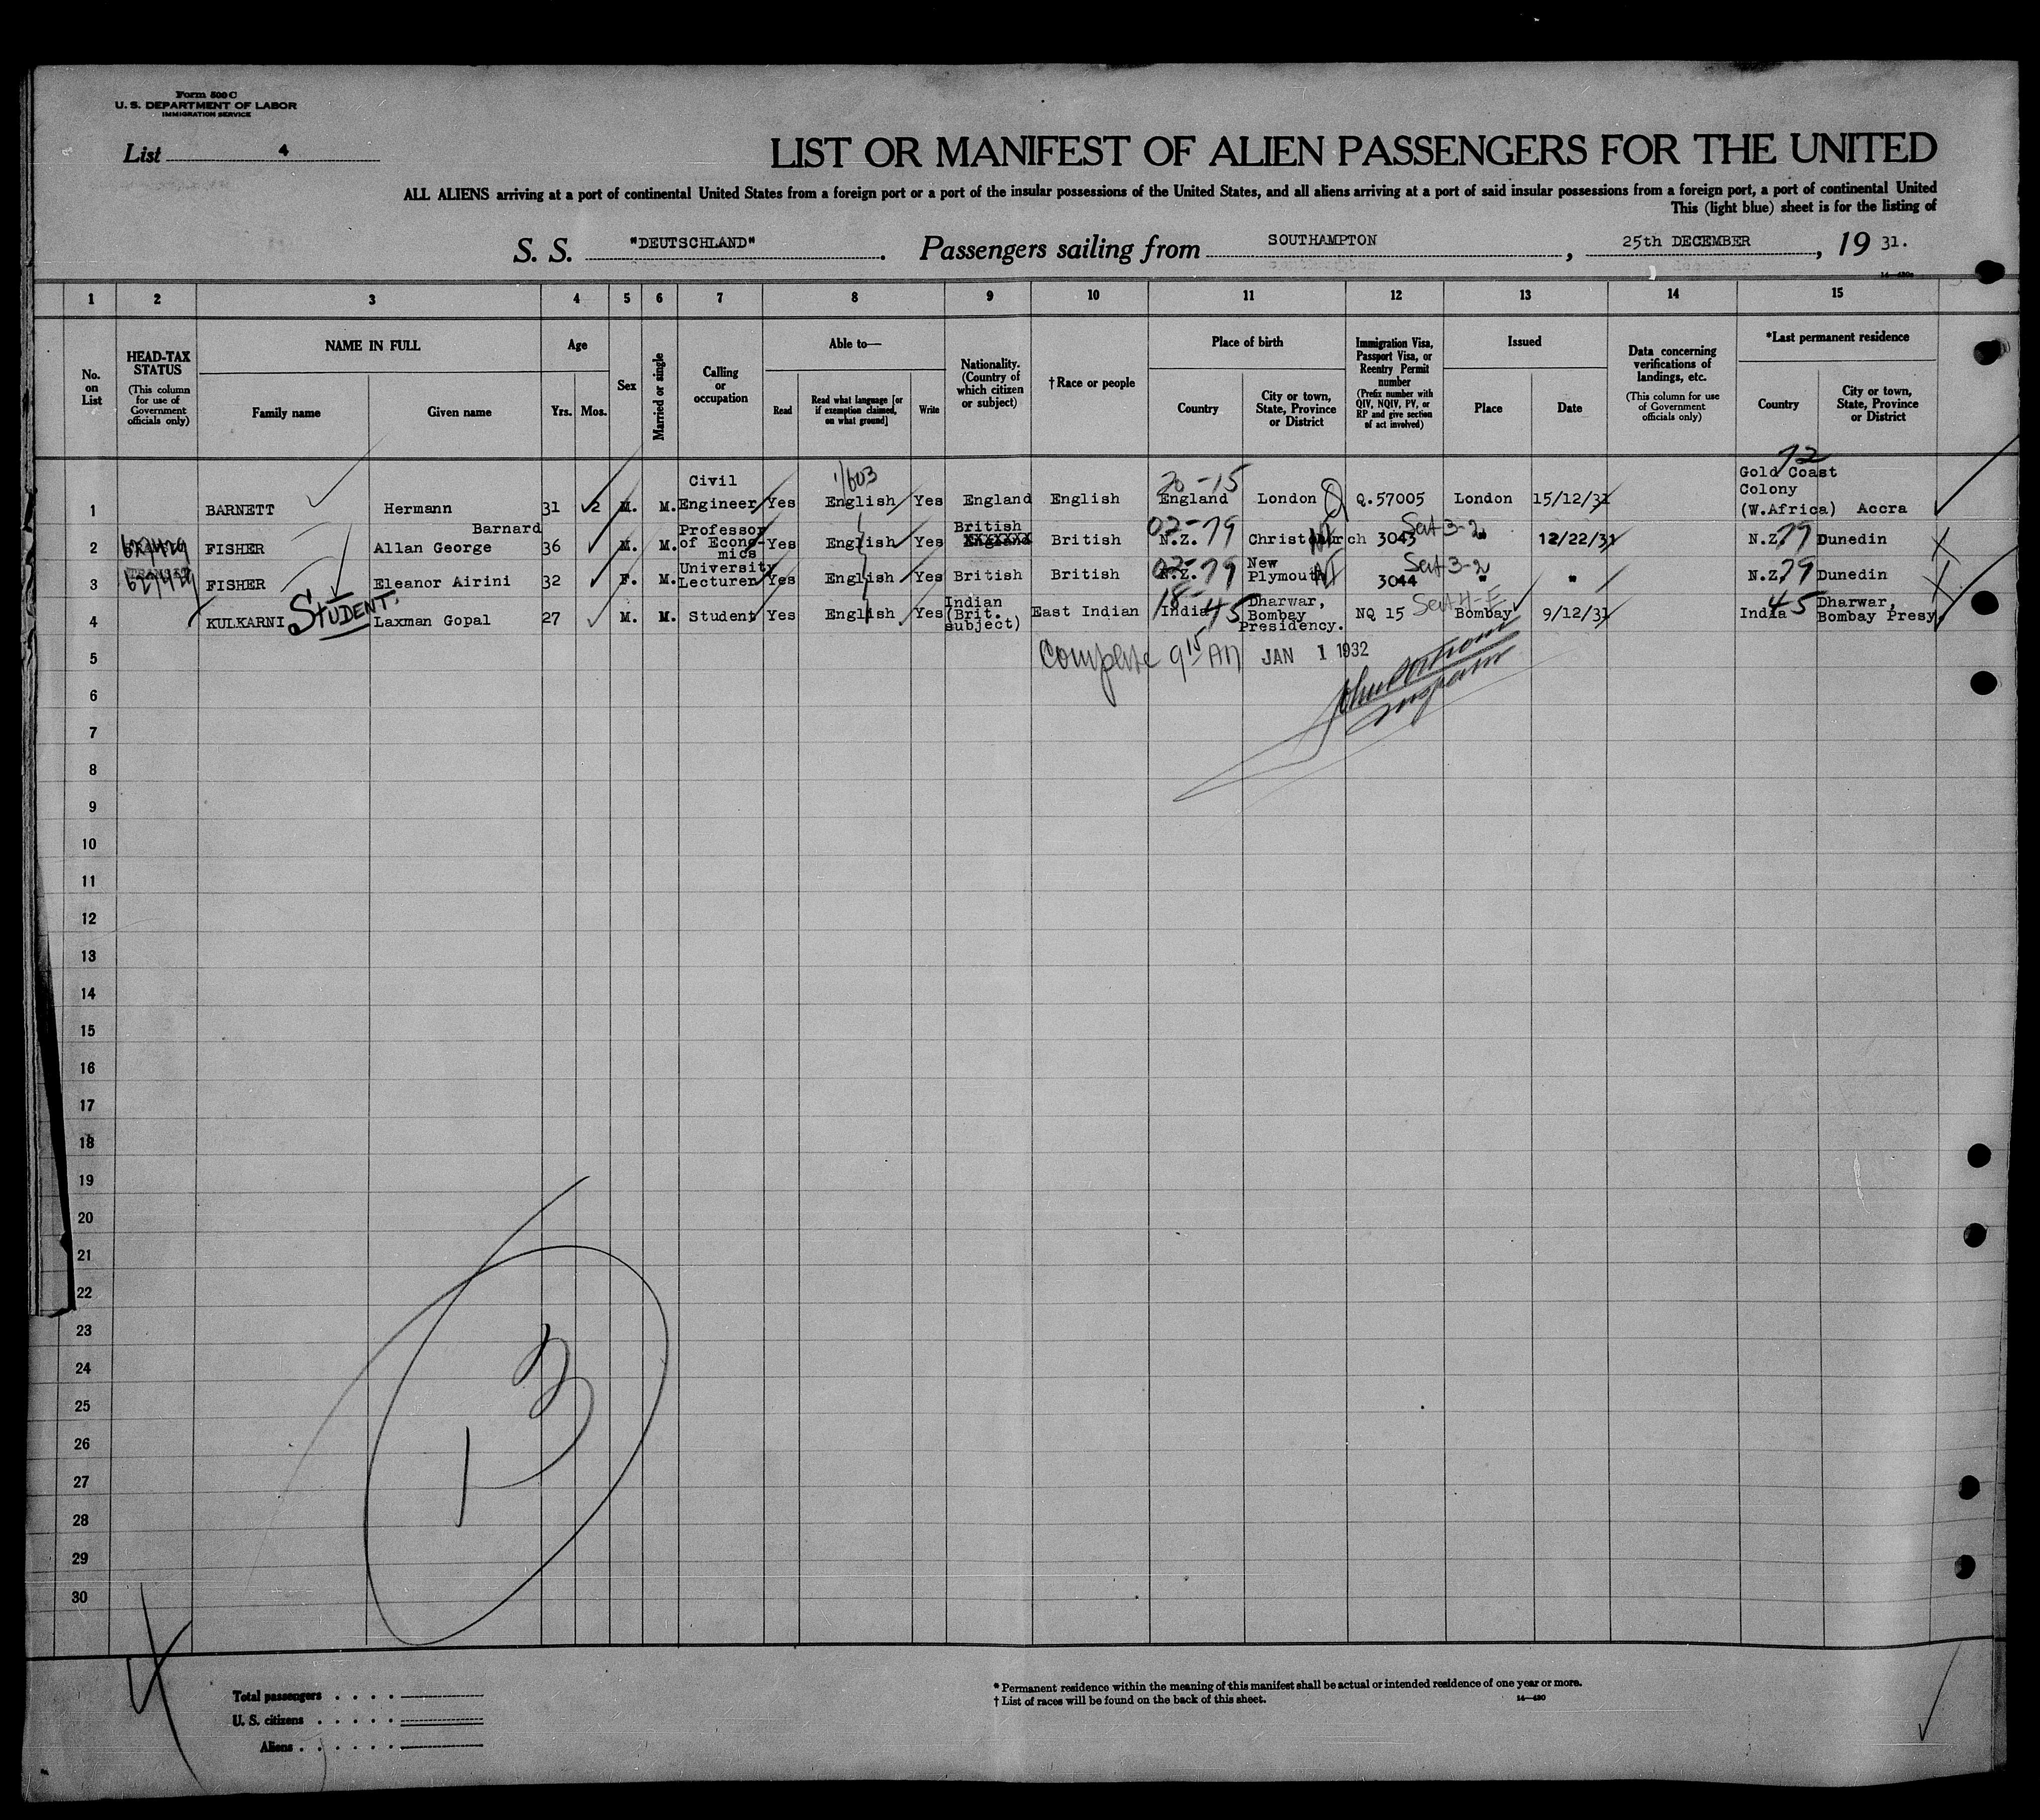 Form 500 C
U. S. DEPARTMENT OF LABOR
IMMIGRATION SERVICE
List 4
LIST OR MANIFEST OF ALIEN PASSENGERS FOR THE UNITED
ALL ALIENS arriving at a port of continental United States from a foreign port or a port of the insular possessions of the United States, and all aliens arriving at a port of said insular possessions from a foreign port, a port of continental United
This (light blue) sheet is for the listing of
S. S. "DEUTSCHLAND". Passengers sailing from SOUTHAMPTON, 25th DECEMBER, 19 31.
14—430a
1 2 3 4 5 6 7 8 9 10 11 12 13 14 15
No. on List
HEAD-TAX STATUS (This column for use of Government officials only)
NAME IN FULL Family name Given name
Age Yrs. Mos.
Sex
Married or single
Calling or occupation
Able to— Read Read what language [or if exemption claimed, on what ground] Write
Nationality. (Country of which citizen or subject)
†Race or people
Place of birth Country City or town, State, Province or District
Immigration Visa, Passport Visa, or Reentry Permit number (Prefix number with QIV, NQIV, PV, or RP and give section of act involved)
Issued Place Date
Data concerning verifications of landings, etc. (This column for use of Government officials only)
*Last permanent residence Country City or town, State, Province or District
1 BARNETT Hermann 31 2 M. M. Civil Engineer Yes English Yes England English England London Q.57005 London 15/12/31 Gold Coast Colony (W.Africa) Accra
1/603 20-15 72
2 FISHER Allan George Barnard 36 M. M. Professor of Economics Yes English Yes British England British N.Z. Christchurch 3043 " 12/22/31 N.Z. Dunedin
02-79 NI Sect 3-2 79
3 FISHER Eleanor Airini 32 F. M. University Lecturer Yes English Yes British British N.Z. New Plymouth 3044 " " N.Z. Dunedin
TRANSIT 02-79 NI Sect 3-2 79
4 KULKARNI Laxman Gopal 27 M. M. Student Yes English Yes Indian (Brit. subject) East Indian India Dharwar, Bombay Presidency. NQ 15 Bombay 9/12/31 India Dharwar, Bombay Presy.
STUDENT. 18-45 Sect 4-E 45
5 Complete 9 15 AM JAN 1 1932
Inspector
6
7
8
9
10
11
12
13
14
15
16
17
18
19
20
21
22
23
24
25
26
27
28
29
30
13
Total passengers
U. S. citizens
Aliens
* Permanent residence within the meaning of this manifest shall be actual or intended residence of one year or more.
† List of races will be found on the back of this sheet.
14—430